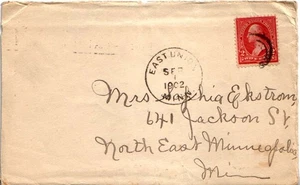 EAST UNION
SEP
1
1902
MINN.
2 2
Mrs Sophia Ekstrom
641 Jackson St,
North East Minneapolis
Minn